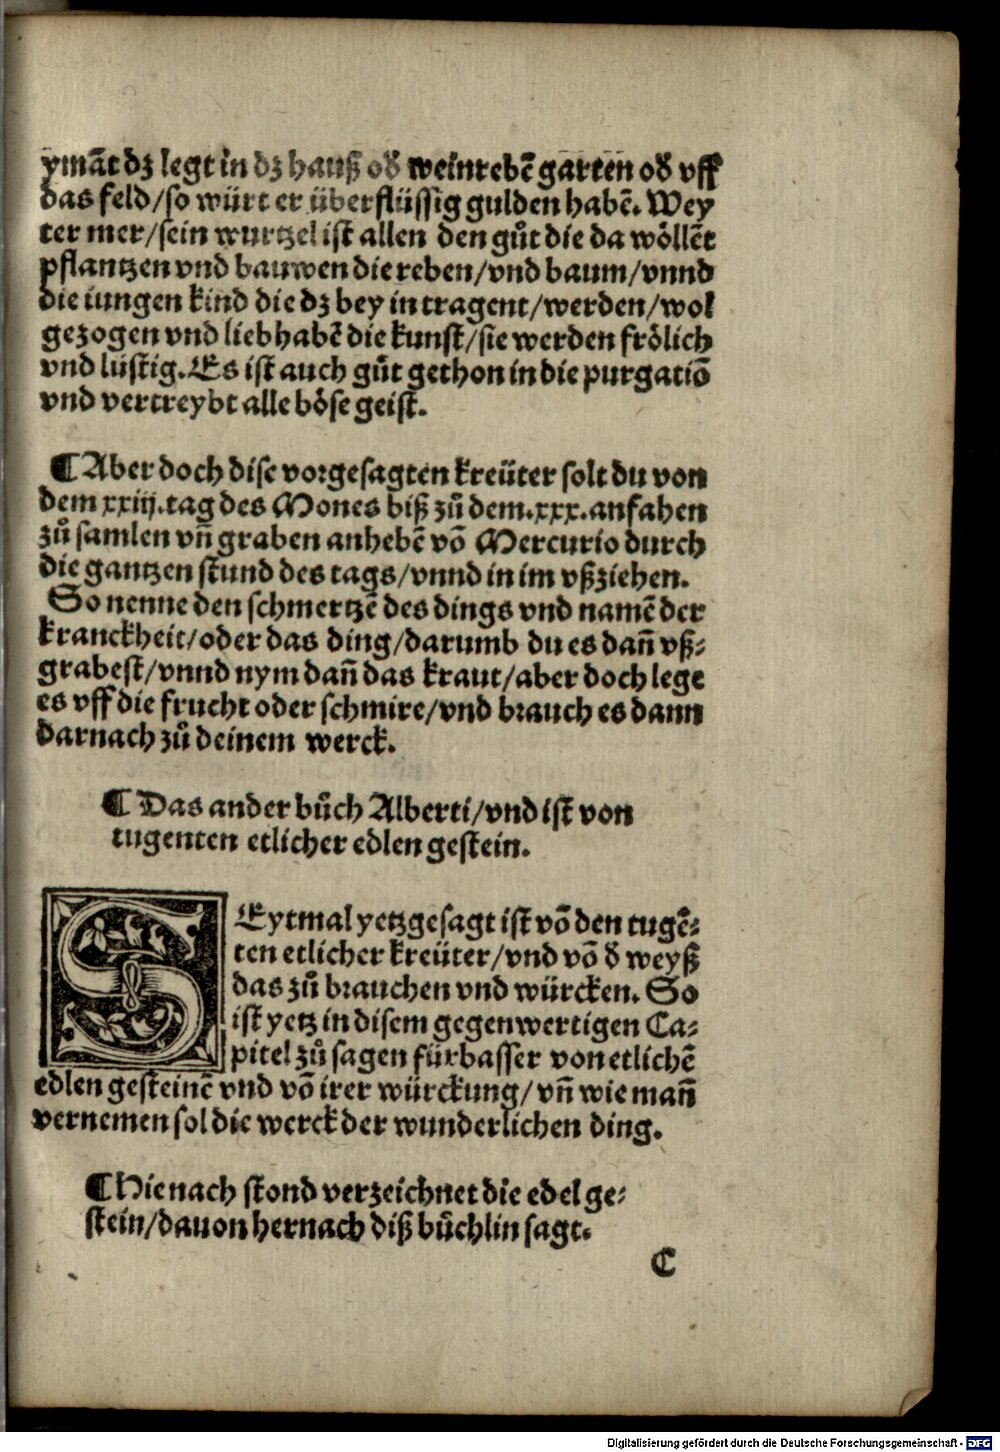 ymãt dz legt in dz hauß od̕ weinrebẽ garten od̕ vff
das feld/so würt er überflüssig gulden habẽ. Wey
ter mer/sein wurtzel ist allen den gůt die da wöllẽt
pflantzen vnd bauwen die reben/vnd baum/vnnd
die iungen kind die dz bey in tragent/werden/wol
gezogen vnd lieb habẽ die kunst/sie werden frölich
vnd lustig. Es ist auch gůt gethon in die purgatiõ
vnd vertreybt alle böse geist.
¶ Aber doch dise vorgesagten kreüter solt du von
dem xxiij. tag des Mones biß zů dem .xxx. anfahen
zů samlen vñ graben anhebẽ võ Mercurio durch
die gantzen stund des tags/vnnd in im vßziehen.
So nenne den schmertzẽ des dings vnd namẽ der
kranckheit/oder das ding/darumb du es dañ vß-
grabest/vnnd nym dañ das kraut/aber doch lege
es vff die frucht oder schmire/vnd brauch es dann
darnach zů deinem werck.
¶ Das ander bůch Alberti/vnd ist von
tugenten etlicher edlen gestein.
SEytmal yetz gesagt ist võ den tugẽ-
ten etlicher kreüter/vnd võ d̕ weyß
das zů brauchen vnd würcken. So
ist yetz in disem gegenwertigen Ca-
pitel zů sagen fürbasser von etlichẽ
edlen gesteinẽ vnd võ irer würckung/vñ wie mañ
vernemen sol die werck der wunderlichen ding.
¶ Hie nach stond verzeichnet die edel ge-
stein/dauon hernach diß bůchlin sagt.
C
Digitalisierung gefördert durch die Deutsche Forschungsgemeinschaft - DFG